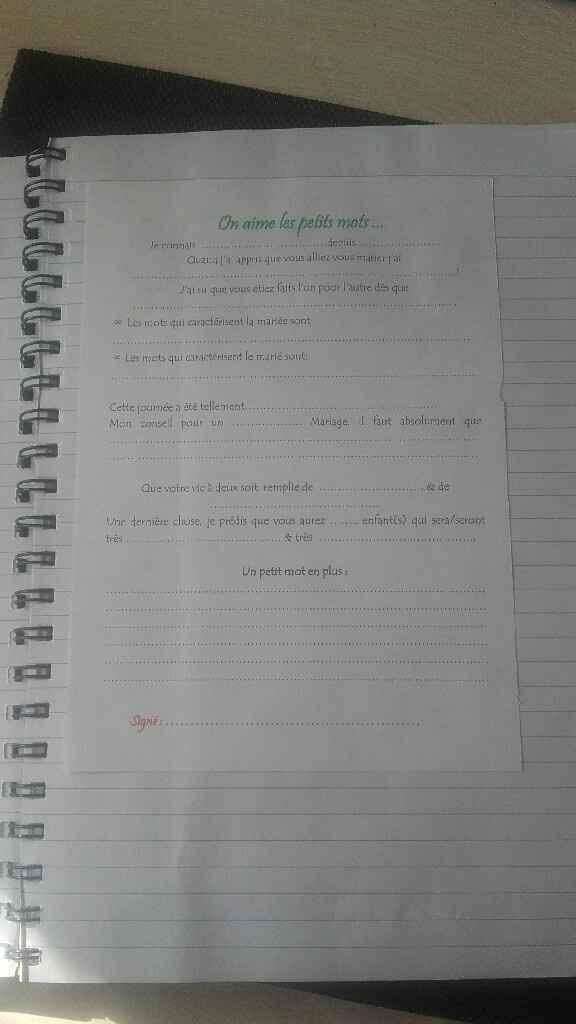 On aime les petits mots...
Je connais ........................ depuis ........................
Quand j'ai appris que vous alliez vous marier j'ai
........................................................................!
J'ai su que vous étiez faits l'un pour l'autre dès que
........................................................................
Les mots qui caractérisent la mariée sont:
........................................................................
Les mots qui caractérisent le marié sont:
........................................................................
Cette journée a été tellement................................................
Mon conseil pour un .................... Mariage, il faut absolument que
........................................................................
........................................................................
Que votre vie à deux soit remplie de ............................ & de
................................................
Une dernière chose, je prédis que vous aurez ........ enfant(s) qui sera/seront
très ........................................ & très ........................................
Un petit mot en plus :
........................................................................
........................................................................
........................................................................
........................................................................
........................................................................
........................................................................
Signé : ................................................................